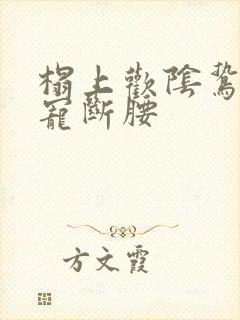 榻上歡陰鷙
寵斷腰
方文霞